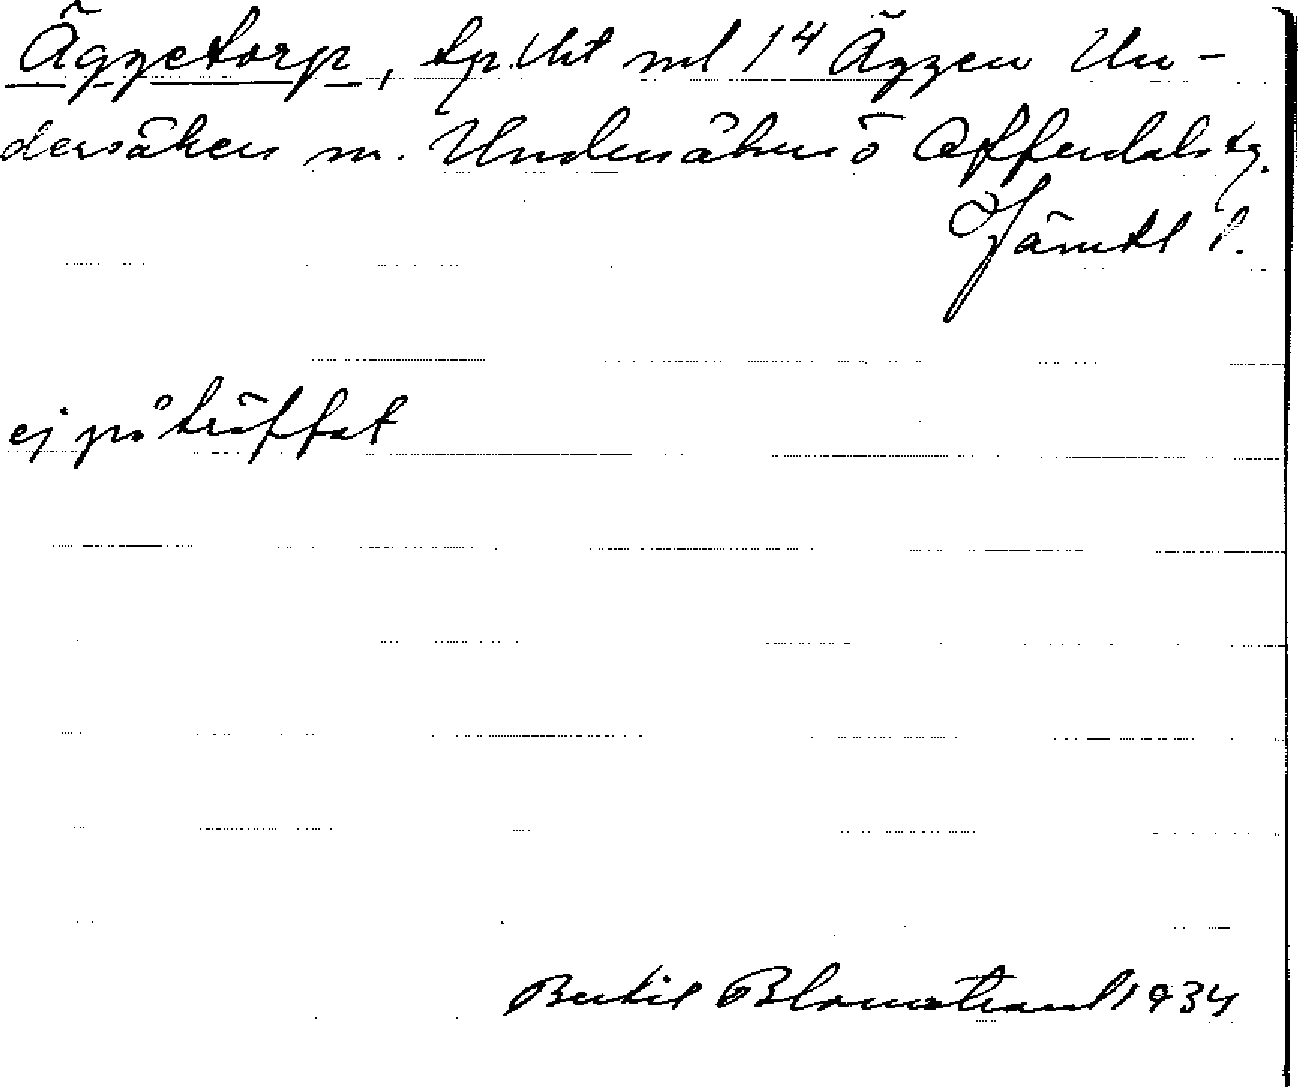 Äggetorp, tp. Uht nd 1⁴ Äggen Un-
dersåkers sn. Undersåkers o Offerdals tg.
Jämtl l.
ej påträffat
Bertil Blomstrand 1934